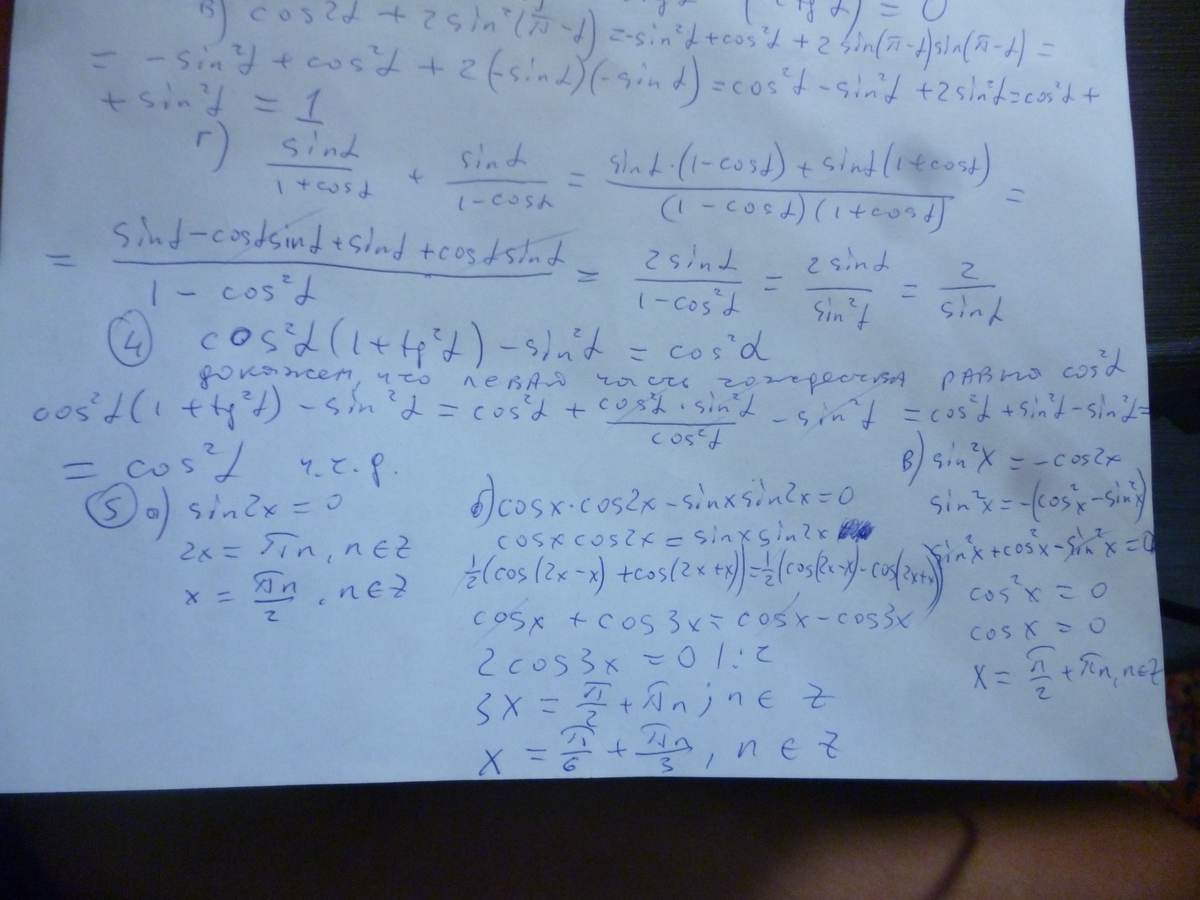 в) cos2α + 2sin²(π-α) = -sin²α + cos²α + 2 sin(π-α)sin(π-α) =
= -sin²α + cos²α + 2(-sinα)(-sinα) = cos²α - sin²α + 2sin²α = cos²α +
+ sin²α = 1
г) sinα/(1+cosα) + sinα/(1-cosα) = (sinα·(1-cosα) + sinα(1+cosα))/((1-cosα)(1+cosα)) =
= (sinα - cosαsinα + sinα + cosαsinα)/(1 - cos²α) = 2sinα/(1-cos²α) = 2sinα/sin²α = 2/sinα
④ cos²α(1+tg²α) - sin²α = cos²α
докажем, что левая часть тождества равна cos²α
cos²α(1+tg²α) - sin²α = cos²α + cos²α·sin²α/cos²α - sin²α = cos²α + sin²α - sin²α =
= cos²α ч.т.д.
⑤ а) sin2x = 0
2x = πn, n∈Z
x = πn/2, n∈Z
б) cosx·cos2x - sinxsin2x = 0
cosxcos2x = sinxsin2x
½(cos(2x-x) + cos(2x+x)) = ½(cos(2x-x) - cos(2x+x))
cosx + cos3x = cosx - cos3x
2cos3x = 0 |:2
3x = π/2 + πn; n∈Z
x = π/6 + πn/3, n∈Z
в) sin²x = -cos2x
sin²x = -(cos²x - sin²x)
sin²x + cos²x - sin²x = 0
cos²x = 0
cosx = 0
x = π/2 + πn, n∈Z